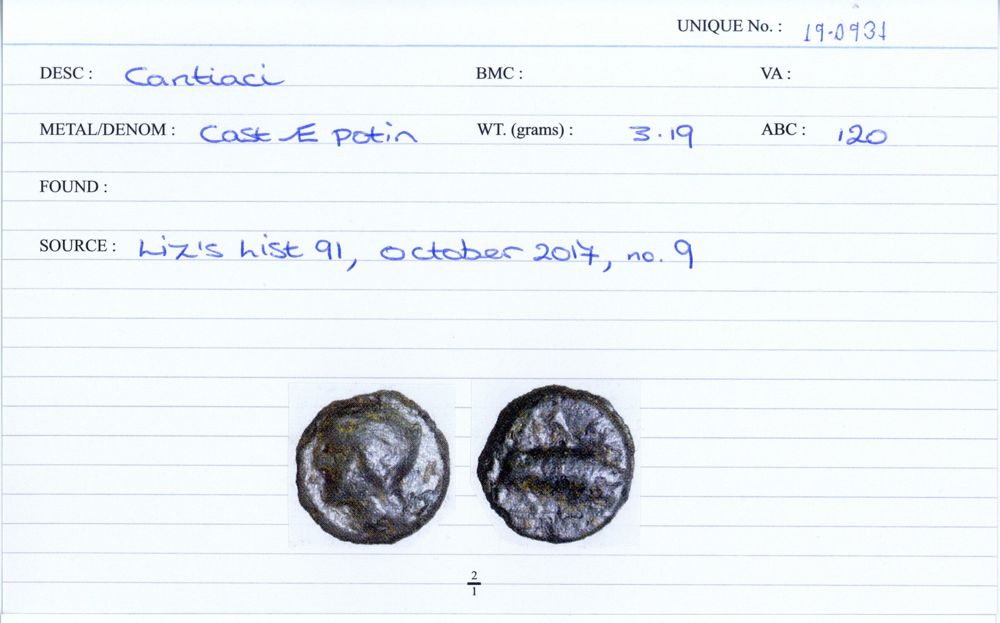 UNIQUE No. : 19-0931
DESC : Cantiaci BMC : VA :
METAL/DENOM : Cast Æ potin WT. (grams) : 3.19 ABC : 120
FOUND :
SOURCE : Liz's List 91, October 2017, no. 9
2
1